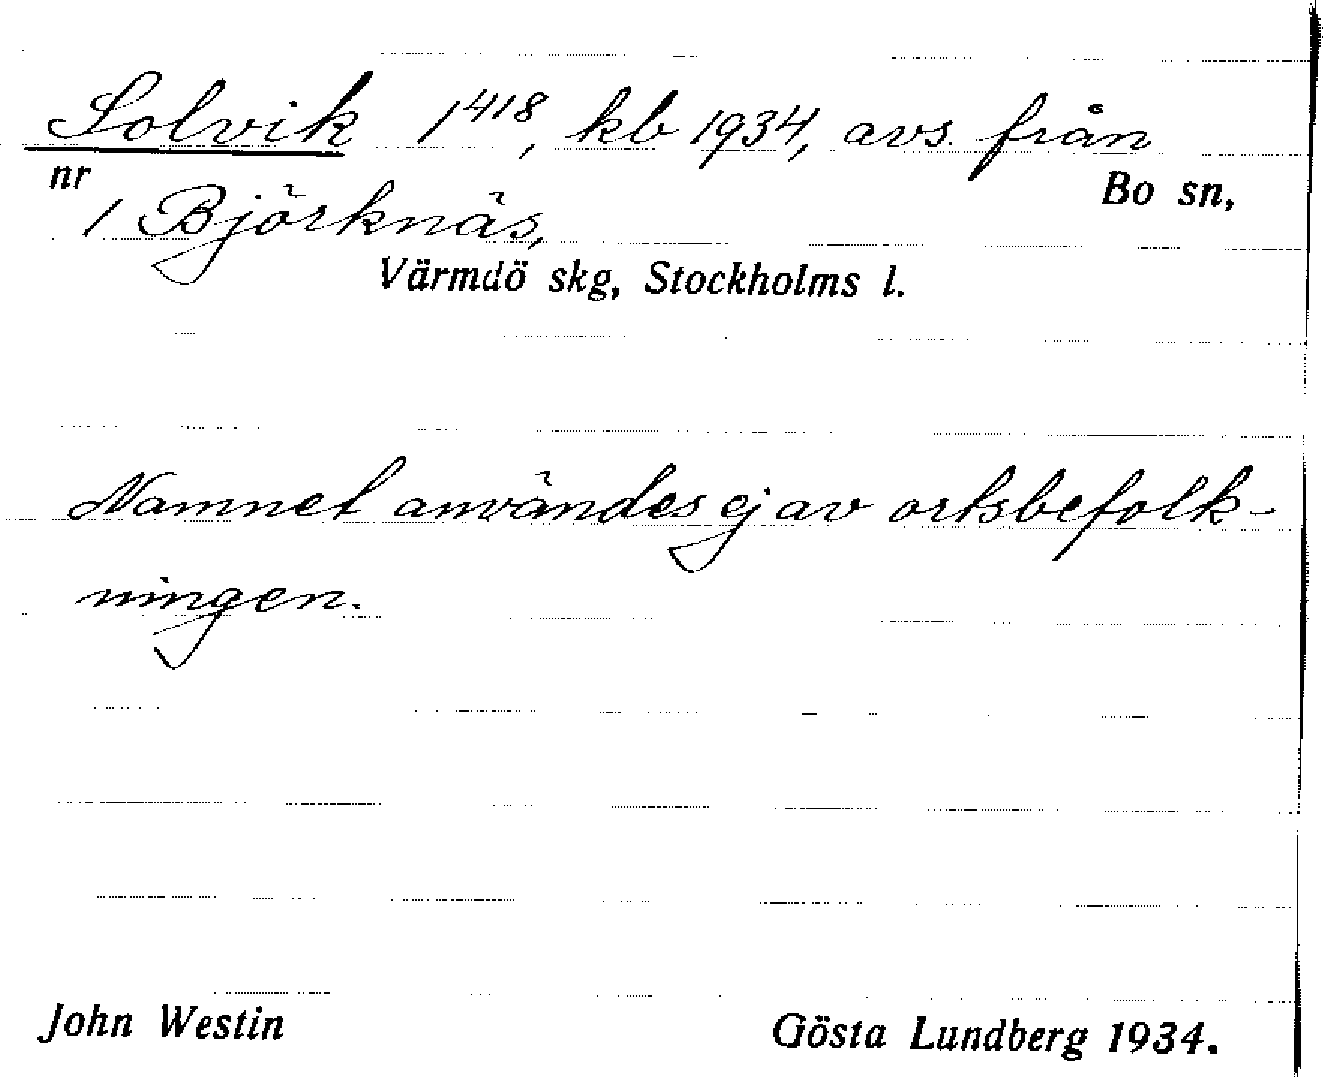 Solvik 1⁴¹⁸, kb 1934, avs. från
nr Bo sn,
1 Björknäs,
Värmdö skg, Stockholms l.
Namnet användes ej av ortsbefolk-
ningen.
John Westin Gösta Lundberg 1934.